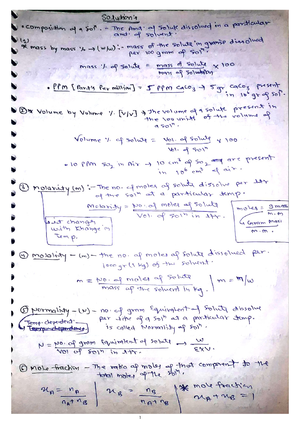 Solution's
* Composition of a Sol. - The Amt. of Solute dissolved in a particular
amt of Solvent.
(1)
* mass by mass % → (w/w) :- mass of the solute in grams dissolved
per 100 gram of Solⁿ.
mass % of Solute = mass of Solute / mass of Solution × 100
• PPM [Parts Per million] → 5 PPM CaCO₃ → 5 gr CaCO₃ present
in 10⁶ gr of Solⁿ.
② * Volume by Volume % [V/V] → The volume of a solute present in
the 100 units of the volume of
a solⁿ.
Volume % of Solute = Vol. of Solute / Vol. of Solⁿ × 100
• 10 PPM SO₂ in Air → 10 cm³ of SO₂ are present
in 10⁶ cm³ of air.
③ Molarity (M) :- The no. of moles of Solute dissolve per ltr
of the Solⁿ at a particular temp.
Molarity = No. of moles of Solute / Vol. of Solⁿ in ltr.
but changes
with change in
Temp.
moles = g mass / m.m
→ Given Mass / m.m.
④ Molality - (m) - The no. of moles of Solute dissolved per
1000 gr (1 kg) of the Solvent.
m = No. of moles of Solute / mass of the solvent in kg. | m = n/W
⑤ Normality - (N) - no. of gram Equivalent of Solute dissolve
per ltr of a Solⁿ at a particular temp.
is called Normality of Solⁿ.
Temp. dependent
N = No. of gram Equivalent of Solute / Vol of Solⁿ in ltr. → w / E × V.
⑥ Mole fraction - The ratio of moles of that component to the
total moles of the Solⁿ.
xA = nA / nA + nB | xB = nB / nA + nB | * mole fraction
xA + xB = 1
1